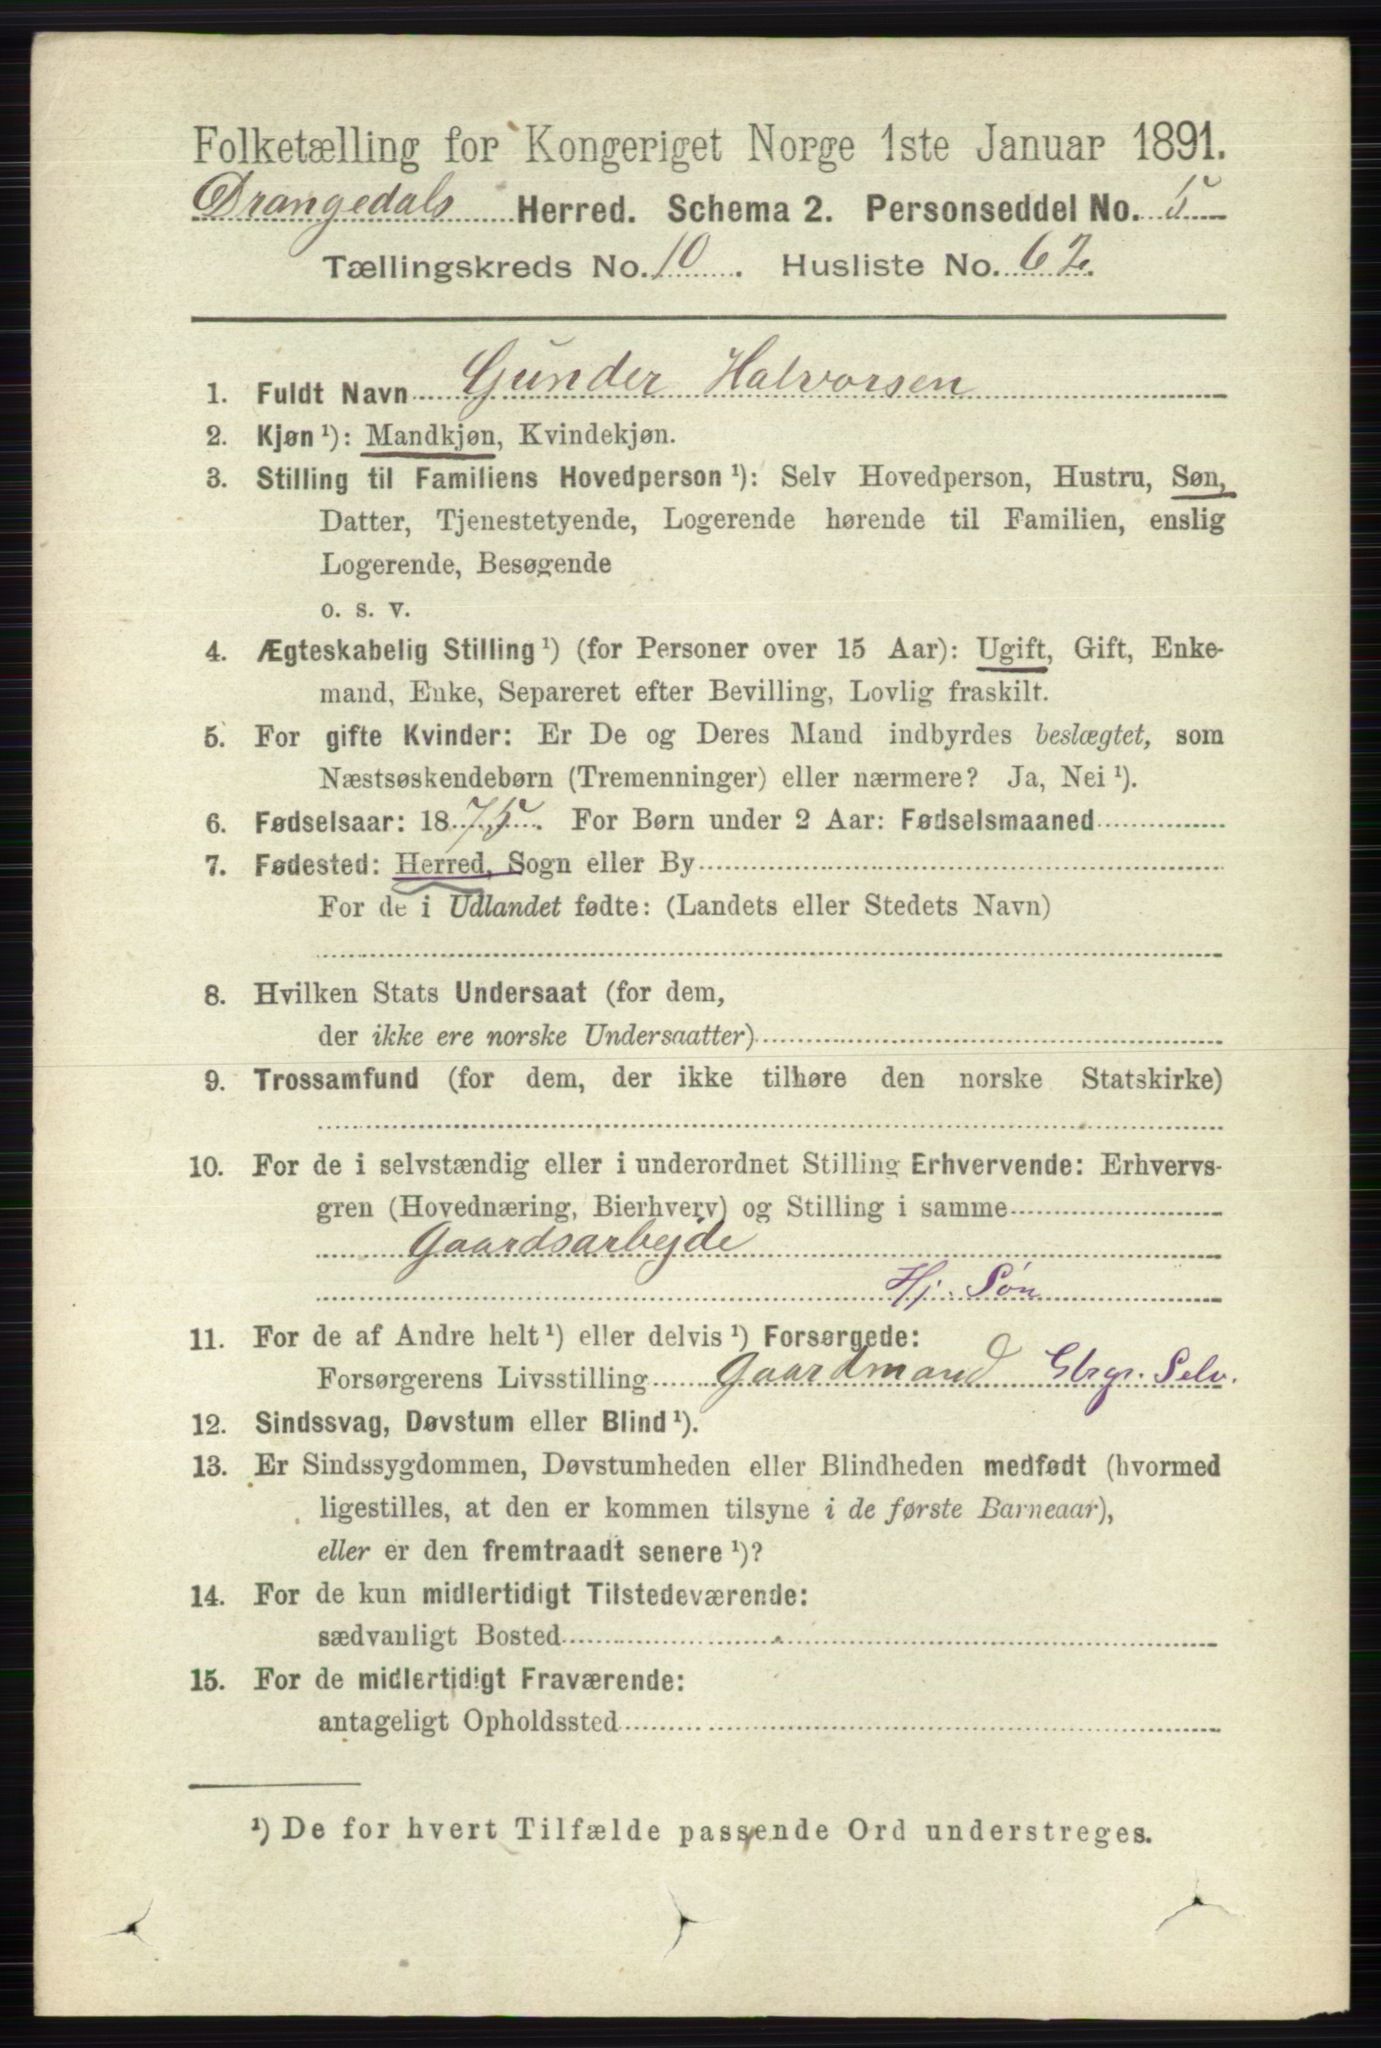 Folketælling for Kongeriget Norge 1ste Januar 1891.
Drangedals Herred. Schema 2. Personseddel No. 5
Tællingskreds No. 10. Husliste No. 62.
1. Fuldt Navn Gunder Halvorsen
2. Kjøn ¹): Mandkjøn, Kvindekjøn.
3. Stilling til Familiens Hovedperson ¹): Selv Hovedperson, Hustru, Søn,
Datter, Tjenestetyende, Logerende hørende til Familien, enslig
Logerende, Besøgende
o. s. v.
4. Ægteskabelig Stilling ¹) (for Personer over 15 Aar): Ugift, Gift, Enke-
mand, Enke, Separeret efter Bevilling, Lovlig fraskilt.
5. For gifte Kvinder: Er De og Deres Mand indbyrdes beslægtet, som
Næstsøskendebørn (Tremenninger) eller nærmere? Ja, Nei ¹).
6. Fødselsaar: 1875. For Børn under 2 Aar: Fødselsmaaned
7. Fødested: Herred, Sogn eller By
For de i Udlandet fødte: (Landets eller Stedets Navn)
8. Hvilken Stats Undersaat (for dem,
der ikke ere norske Undersaatter)
9. Trossamfund (for dem, der ikke tilhøre den norske Statskirke)
10. For de i selvstændig eller i underordnet Stilling Erhvervende: Erhvervs-
gren (Hovednæring, Bierhverv) og Stilling i samme
Gaardsarbejde
Hj. Søn
11. For de af Andre helt ¹) eller delvis ¹) Forsørgede:
Forsørgerens Livsstilling Gaardmand Gbrgr. Selv.
12. Sindssvag, Døvstum eller Blind ¹).
13. Er Sindssygdommen, Døvstumheden eller Blindheden medfødt (hvormed
ligestilles, at den er kommen tilsyne i de første Barneaar),
eller er den fremtraadt senere ¹)?
14. For de kun midlertidigt Tilstedeværende:
sædvanligt Bosted
15. For de midlertidigt Fraværende:
antageligt Opholdssted
¹) De for hvert Tilfælde passende Ord understreges.